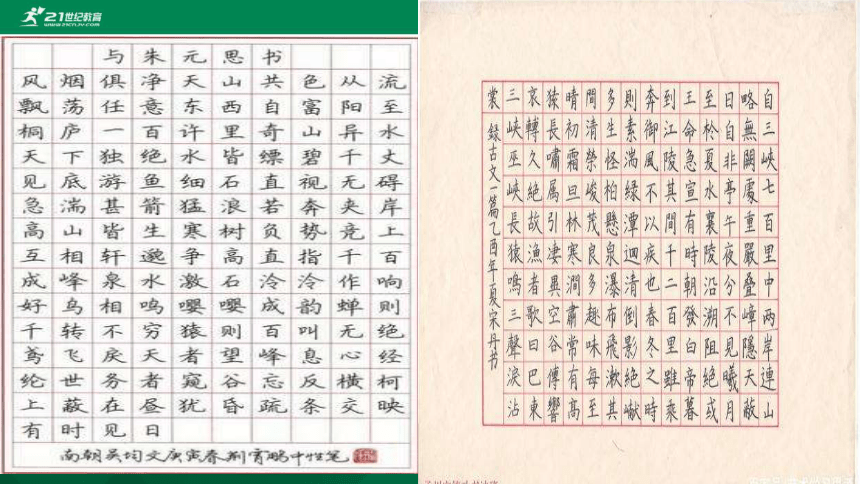 21世纪教育
www.21cnjy.com
与朱元思书
风烟俱净天山共色从流
飘荡任意东西自富阳至
桐庐一百许里奇山异水
天下独绝水皆缥碧千丈
见底游鱼细石直视无碍
急湍甚箭猛浪若奔夹岸
高山皆生寒树负势竞上
互相轩邈争高直指千百
成峰泉水激石泠泠作响
好鸟相鸣嘤嘤成韵蝉则
千转不穷猿则百叫无绝
鸢飞戾天者望峰息心经
纶世务者窥谷忘反横柯
上蔽在昼犹昏疏条交映
有时见日
南朝吴均文庚寅春荆霄鹏中性笔
自三峡七百里中两岸連山
略無闕處重嚴叠嶂隱天蔽
日自非亭午夜分不見曦月
至於夏水襄陵沿溯阻絶或
王命急宣有時朝發白帝暮
到江陵其間十二百里雖乘
奔御風不以疾也春冬之時
則素湍绿潭迴清倒影絶巘
多生怪柏懸泉瀑布飛漱其
間清榮峻茂良多趣味每至
晴初霜旦林寒澗肅常有高
猿長嘯属引凄異空谷傳響
哀轉久絶故漁者歌曰巴東
三峡巫峡長猿鳴三聲淚沾
裳
錄古文一篇乙酉年夏宋丹书